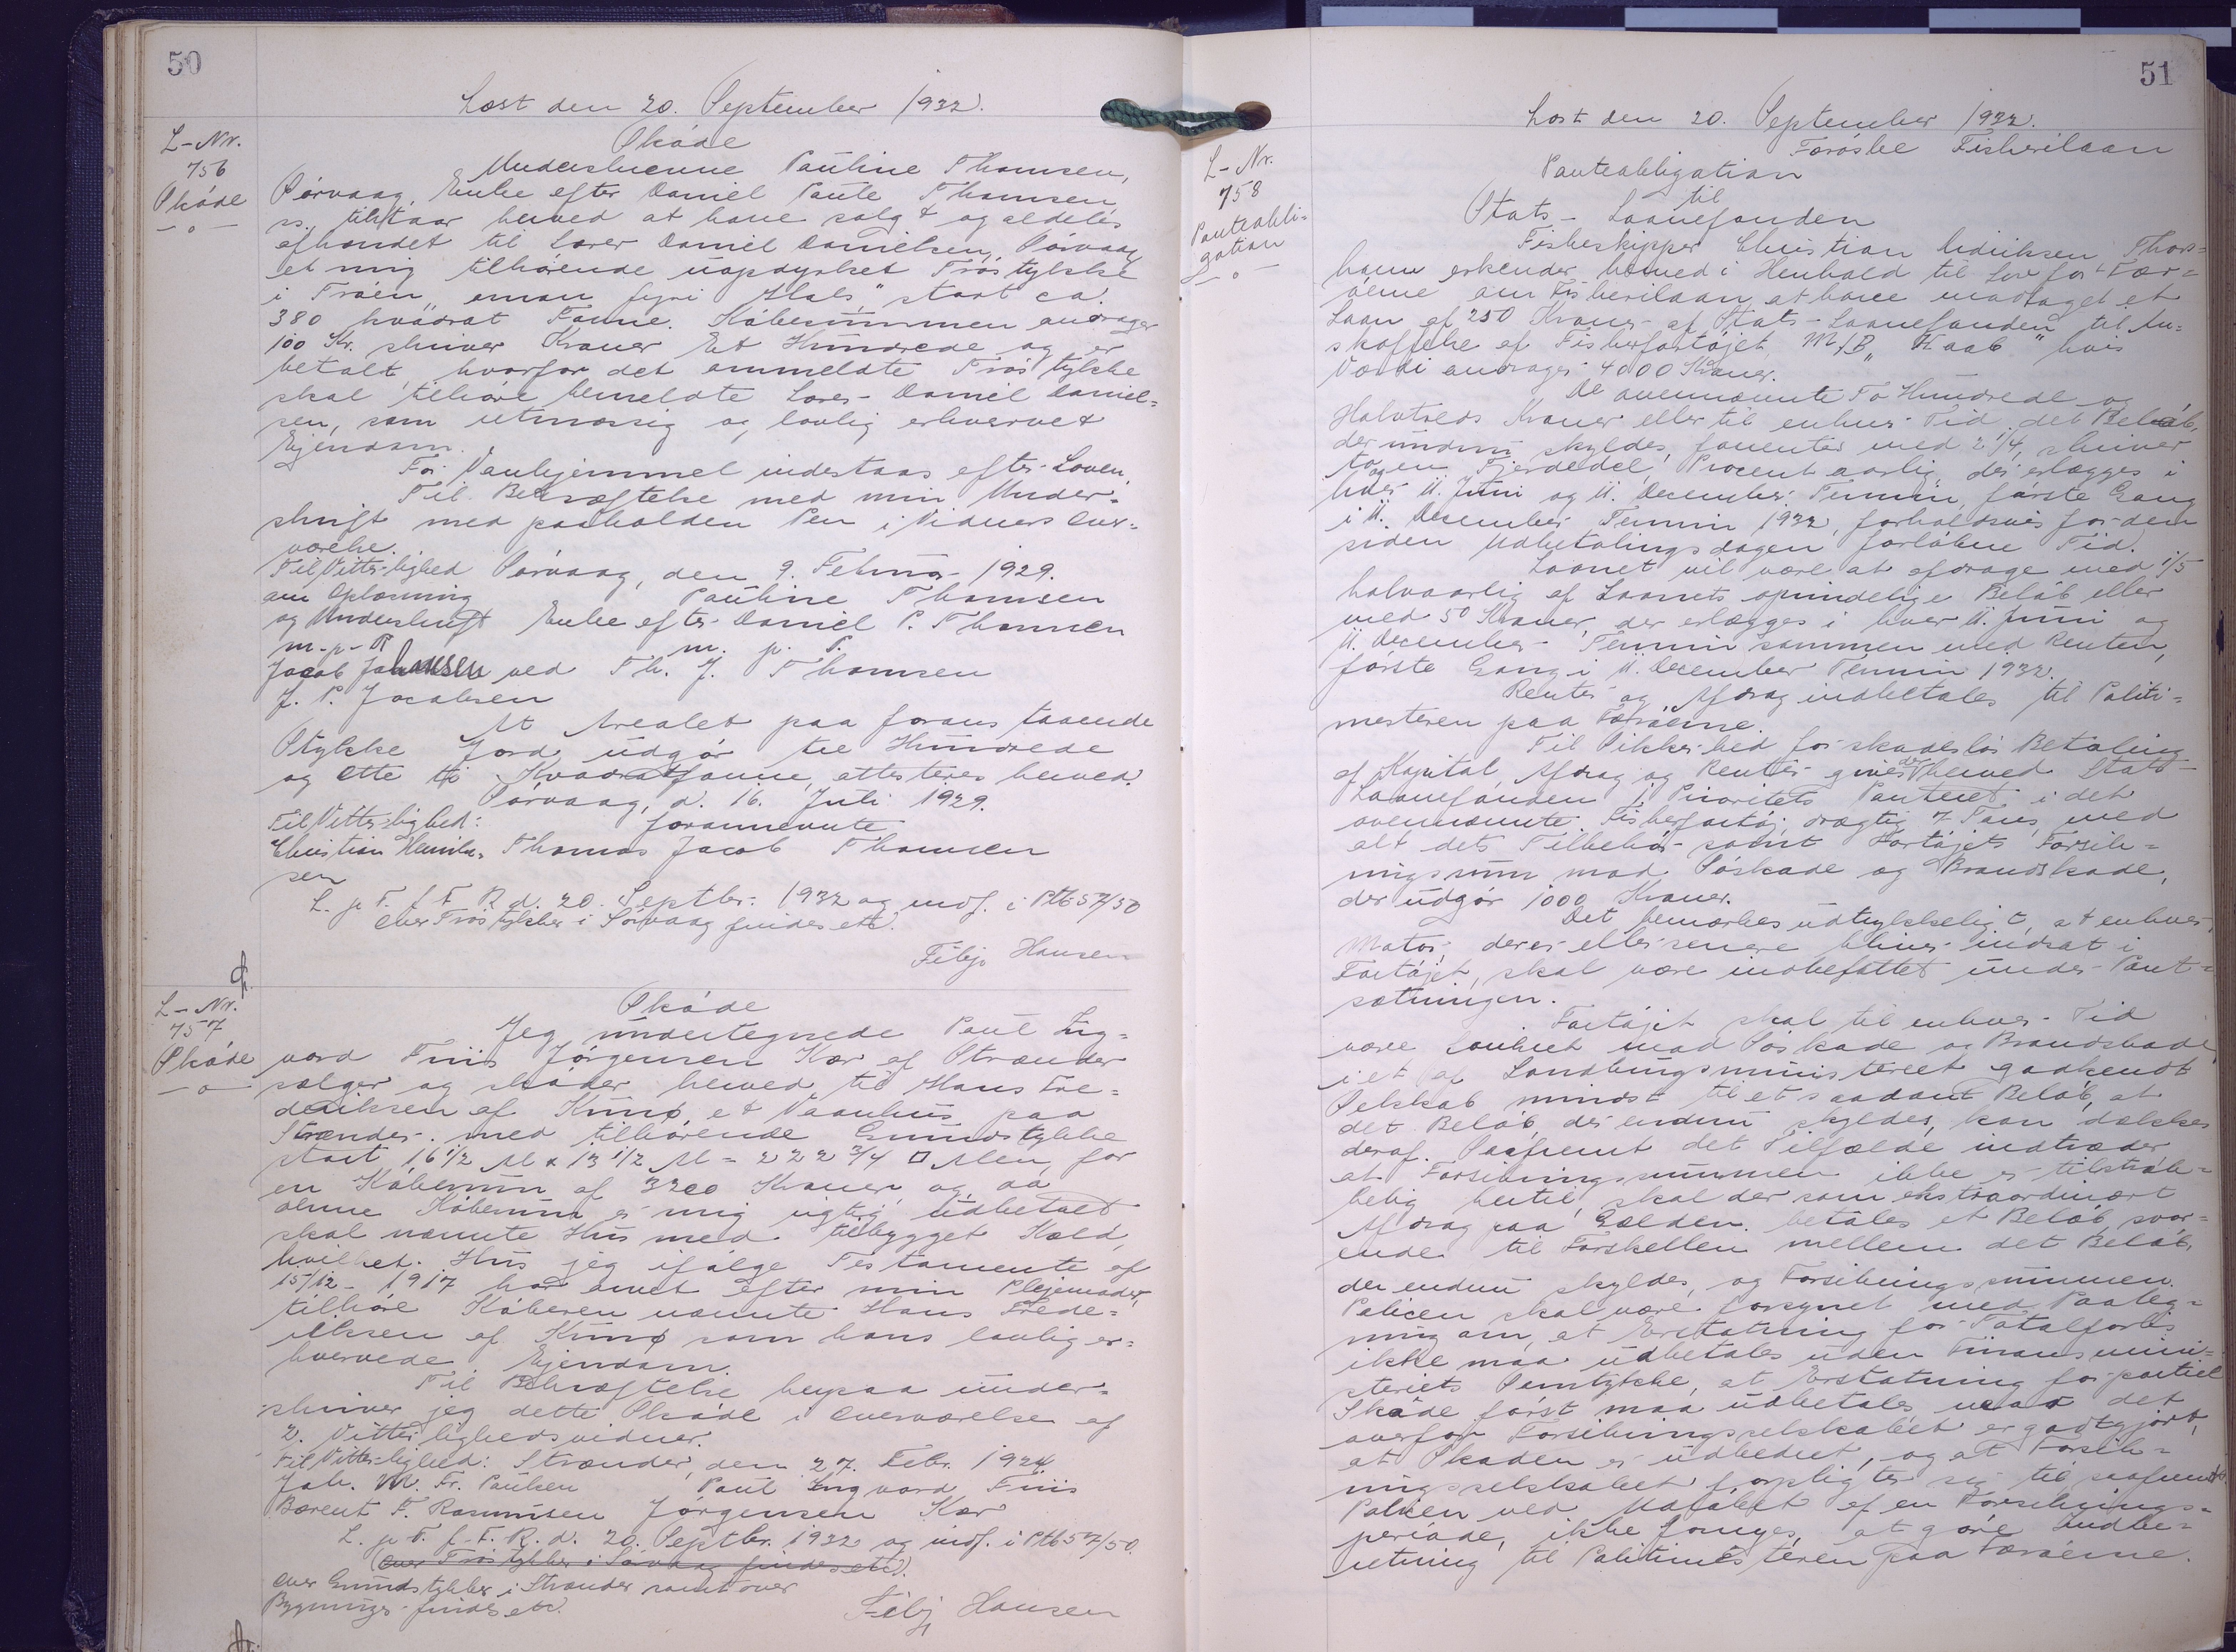 50
Læst den 20. September 1932.
L-Nr.
756
Skøde
Skøde
Undeskrevne Pauline Thomsen,
Sørvaag, Enke efter Daniel Paule Thomsen
ss. tilstaar herved at have solgt og aldeles
afhændet til Lærer Daniel Danielsen, Sørvaag
et mig tilhørende uopdyrket Træstykke
i Trøen, "oman fyri Hals," stort ca.
380 kvadrat Favne. Købesummen andrager
100 Kr. skriver Kroner Et Hundrede og er
betalt, hvorfor det ommeldte Træstykke
skal tilhøre bemeldte Lærer Daniel Daniel=
sen, som retmæssig og lovlig erhvervet
Ejendom.
For Vanhjemmel indestaas efter Loven.
Til Bekræftelse med min Under=
skrift med paaholden Pen i Vidners Over=
værelse.
Til Vitterlighed Sørvaag, den 9. Februar 1929.
om Oplæsning Pauline Thomsen
og Underskrift Enke efter Daniel P. Thomsen
m-p-P m. p. P.
Jacob Johansen ved Th. J. Thomsen
J. P. Jacobsen
At Arealet paa foranstaaende
Stykke Jord udgør tre Hundrede
og Otte ti Kvadratfavne, attesteres herved.
Sørvaag, d. 16. Juli 1929.
Til Vitterlighed: forannevnte
Christian Heinik= Thomas Jacob Thomsen
sen
L. p. T. f. F. R. d. 20. Septbr. 1932 og indf. i Ptb 57/30
Over Træstykker i Sørvaag findes etc.
Filip Hansen
L-Nr.
757
Skøde
Skøde
Jeg undertegnede Paul Ing=
vard Friis Jørgensen Kær af Strænder
sælger og skøder herved til Hans Fre=
deriksen af Kunø, et Vaanhus paa
Strænder med tilhørende Grundstykke
stort 16 1/2 Al x 13 1/2 Al = 222 3/4 □ Alen, for
en Købesum af 3200 Kroner og da
denne Købesum er mig rigtig udbetalt
skal nævnte Hus med tilbygget Kæld,
hvilket Hus jeg ifølge Testamente af
15/12 - 1917 har arvet efter min Plejemoder,
tilhøre Køberen nævnte Hans Frede=
riksen af Kunø som hans lovlig er=
hvervede Ejendom.
Til Bekræftelse herpaa under=
skriver jeg dette Skøde i Overværelse af
2. Vitterlighedsvidner.
Til Vitterlighed: Strænder, den 27. Febr. 1924
Joh. M. Fr. Paulsen Paul Ingvard Friis
Bærent F. Rasmusen Jørgensen Kær
L. p. T. f. F. R. d. 20. Septbr. 1932 og indf. i Ptb 57/50.
(Over Træstykker i Sørvaag findes etc.)
Over Grundstykker i Strænder samt over
Bygninger findes etc.
Filip Hansen
51
Læst den 20. September 1932.
L-Nr.
758
Panteobli=
gation
Færøske Fiskerilaan
Panteobligation
til
Stats-Laanefonden
Fiskeskipper Christian Thors=
havn erkender herved i Henhold til Lov for Fær=
øerne om Fiskerilaan at have modtaget et
Laan af 250 Kroner af Stats-Laanefonden til An=
skaffelse af Fiskerfartøjet M/B "Haab" hvis
Værdi andrager 4000 Kroner.
De ovennævnte To Hundrede og
Halvtreds Kroner eller til enhver Tid det Beløb,
der endnu skyldes, forrentes med 2 1/4, skriver
to og en Fjerdedel, Procent aarlig, der erlægges i
hver 11. Juni og 11. December Termin, første Gang
i 11. December Termin 1932, forholdsvis for den
siden Udbetalingsdagen forløbne Tid.
Laanet vil være at afdrage med 1/5
halvaarlig af Laanets oprindelige Beløb eller
med 50 Kroner, der erlægges i hver 11. Juni og
11. December Termin sammen med Renten,
første Gang i 11. December Termin 1932.
Renter og Afdrag indbetales til Politi=
mesteren paa Færøerne.
Til Sikkerhed for skadesløs Betaling
af Kapital, Afdrag og Renter gives der herved Stats-
Laanefonden 1. Prioritets Panteret i det
ovennævnte Fiskerfartøj, drægtig 7 Tons, med
alt dets Tilbehør samt Fartøjets Forsik=
ringssum mod Søskade og Brandskade,
der udgør 1000 Kroner.
Det bemærkes udtrykkeligt, at enhver
Motor, der er eller senere bliver indsat i
Fartøjet, skal være indbefattet under Pant=
sætningen.
Fartøjet skal til enhver Tid
være forsikret mod Søskade og Brandskade
i et af Landbrugsministeriet godkendt
Selskab mindst til et saadant Beløb, at
det Beløb, der endnu skyldes, kan dækkes
deraf. Saafremt det Tilfælde indtræder
at Forsikringssummen ikke er tilstræk=
kelig hertil, skal der som ekstraordinært
Afdrag paa Gælden betales et Beløb, svar=
ende til Forskellen mellem det Beløb,
der endnu skyldes, og Forsikringssummen.
Policen skal være forsynet med Paateg=
ning om, at Erstatning for Totalforlis
ikke maa udbetales uden Finansmini=
steriets Samtykke, at Erstatning for partiel
Skade først maa udbetales naar det
overfor Forsikringsselskabet er godtgjort,
at Skaden er udbedret, og at Forsik=
ringsselskabet forpligter sig til, saafremt
Policen ved Udløbet af en Forsikrings=
periode, ikke fornyes, at gøre Indbe=
retning til Politimesteren paa Færøerne.